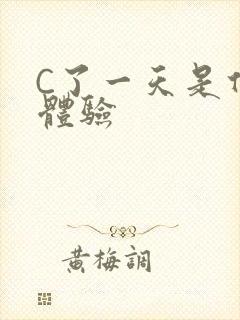 C了一天是
體驗
黄梅調